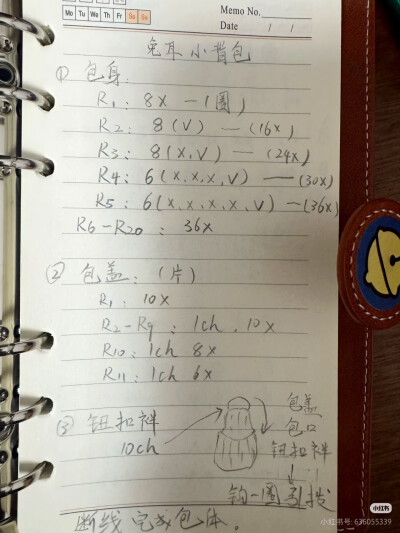 Mo Tu We Th Fr Sa Su
Memo No.
Date / /
兔耳小背包
① 包身:
R1: 8X —(圈)
R2: 8(V) —(16X)
R3: 8(X,V) —(24X)
R4: 6(X,X,X,V) —(30X)
R5: 6(X,X,X,X,V) —(36X)
R6-R20: 36X
② 包盖:(片)
R1: 10X
R2-R9: 1ch, 10X
R10: 1ch 8X
R11: 1ch 6X
③ 钮扣袢
10ch
包盖
包口
钮扣袢
钩一圈引拔
断线完成包体。
小红书
小红书号: 636055339